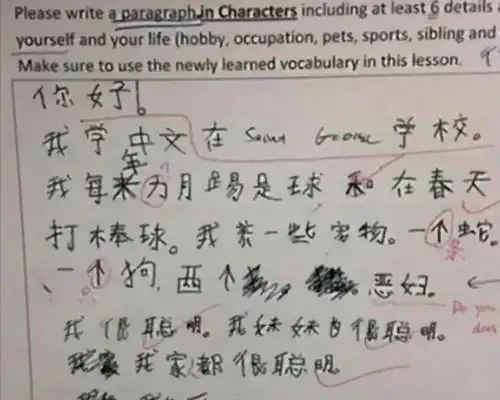 Please write a paragraph in Characters including at least 6 details
yourself and your life (hobby, occupation, pets, sports, sibling and
Make sure to use the newly learned vocabulary in this lesson.
你好!
我学中文在 学校。
我每年 为月踢是球和在春天
打棒球。我 一些宠物。一个蛇。
条
一个狗,西个 恶
Do you
我很聪明。我妹妹 很聪明。
我家都很聪明。